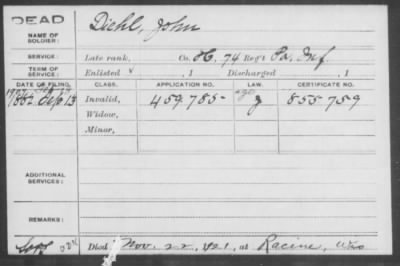 DEAD
NAME OF SOLDIER:
Diehl, John
SERVICE:
Late rank, Co. H, 74 Reg't Pa. Inf.
TERM OF SERVICE:
Enlisted , 1 Discharged , 1
DATE OF FILING. CLASS. APPLICATION NO. LAW. CERTIFICATE NO.
1882 Sep 13 Invalid, 459.785 855.759
Widow,
Minor,
ADDITIONAL SERVICES:
REMARKS:
Died Nov. 22, 1921, at Racine, Wis